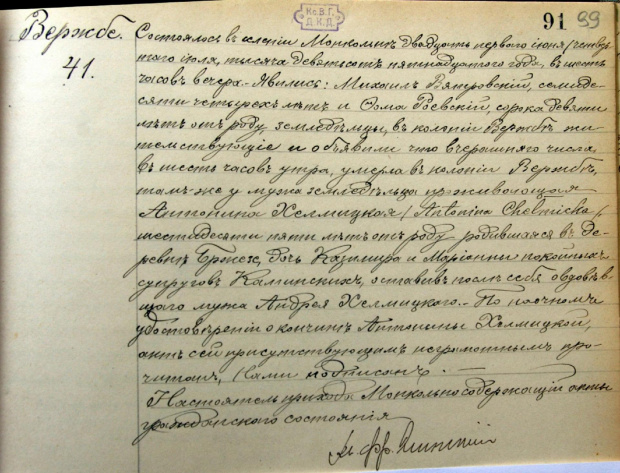 Кс.В.Г.
Д.К.Д.
91 99
Вержбе.
41.
Состоялось въ селеніи Мокольнъ двадцать перваго іюня /четвер
таго іюля, тысяча девятьсотъ пятнадцатаго года, въ шесть
часовъ вечера. Явились: Михаилъ Вятровскій, семиде-
сяти четырехъ лѣтъ и Ѳома Роевскій, сорока девяти
лѣтъ отъ роду, земледѣльцы, въ колоніи Вержбѣ жи
тельствующіе и объявили что вчерашняго числа
въ шесть часовъ утра, умерла въ колоніи Вержбѣ,
тамъ-же у мужа земледѣльца проживающая
Антонина Хелмицкая / Antonina Chełmicka /,
шестидесяти пяти лѣтъ отъ роду родившаяся въ де-
ревнѣ дочь Казиміра и Маріанны покойныхъ
супруговъ Калинскихъ, оставивъ послѣ себя овдовѣв
шаго мужа Андрея Хелмицкаго. По
удостовѣреніи о кончинѣ Антонины Хелмицкой,
актъ сей присутствующимъ неграмотнымъ про-
читанъ, Нами подписанъ.
Настоятель прихода содержащій акты
гражданскаго состоянія